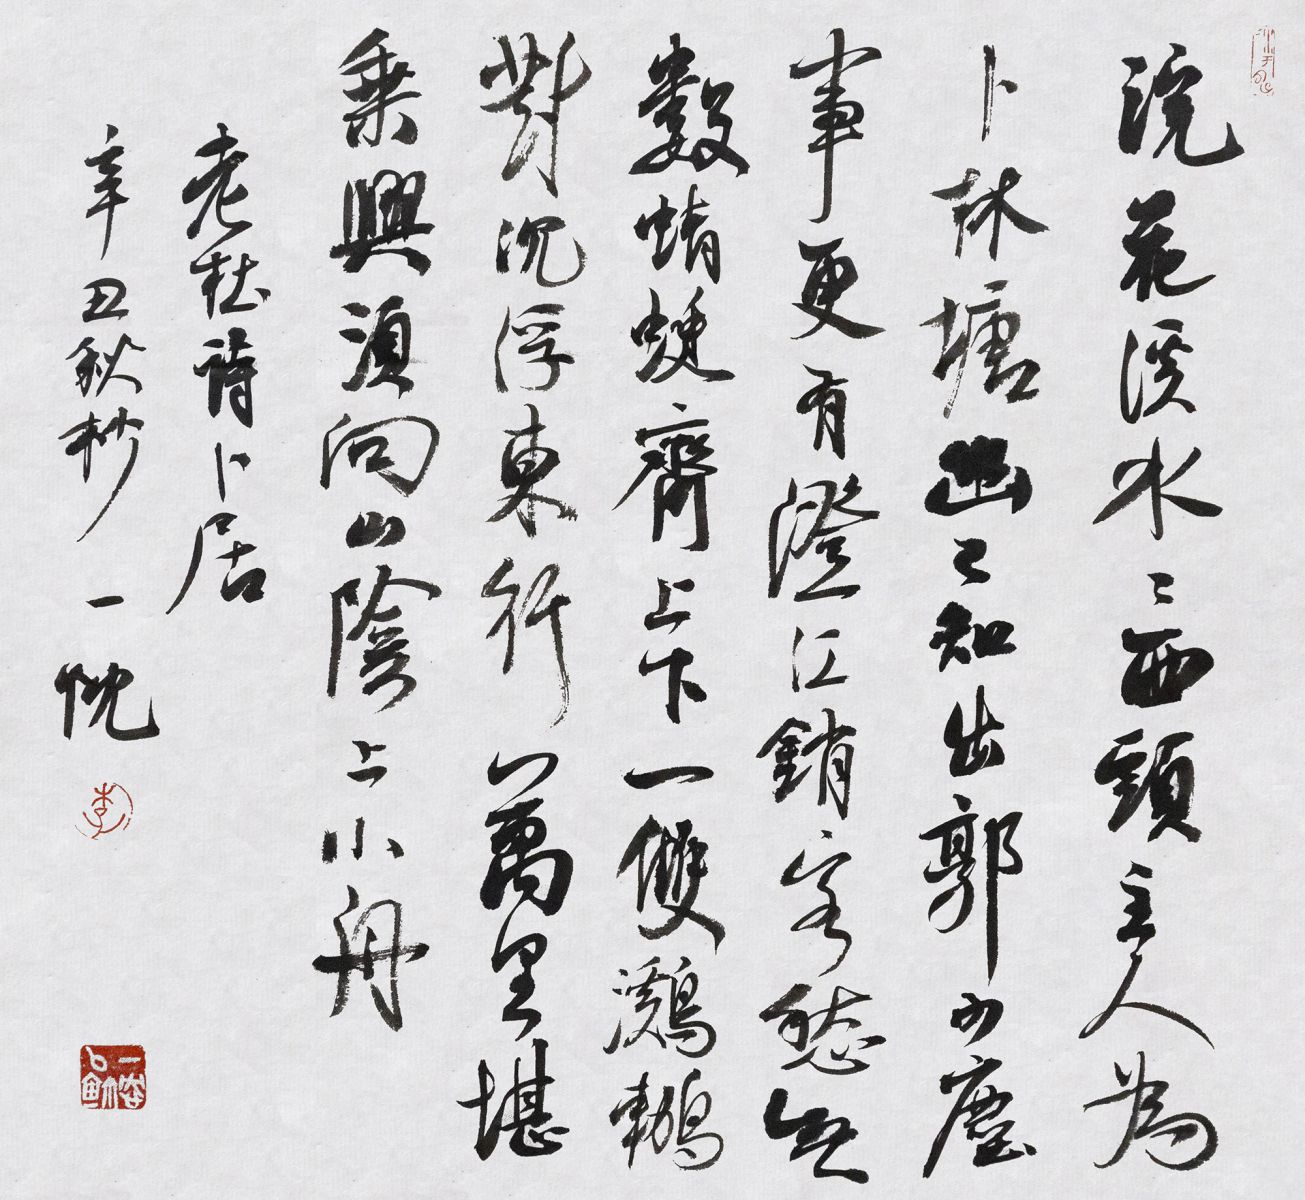 浣花溪水〻西頭主人為
卜林塘幽已知出郭少塵
事更有澄江銷客愁無
數蜻蜓齊上下一雙鸂鶒
對沉浮東行萬里堪
乘興須向山陰上小舟
老杜詩卜居
辛丑秋杪一忱
李